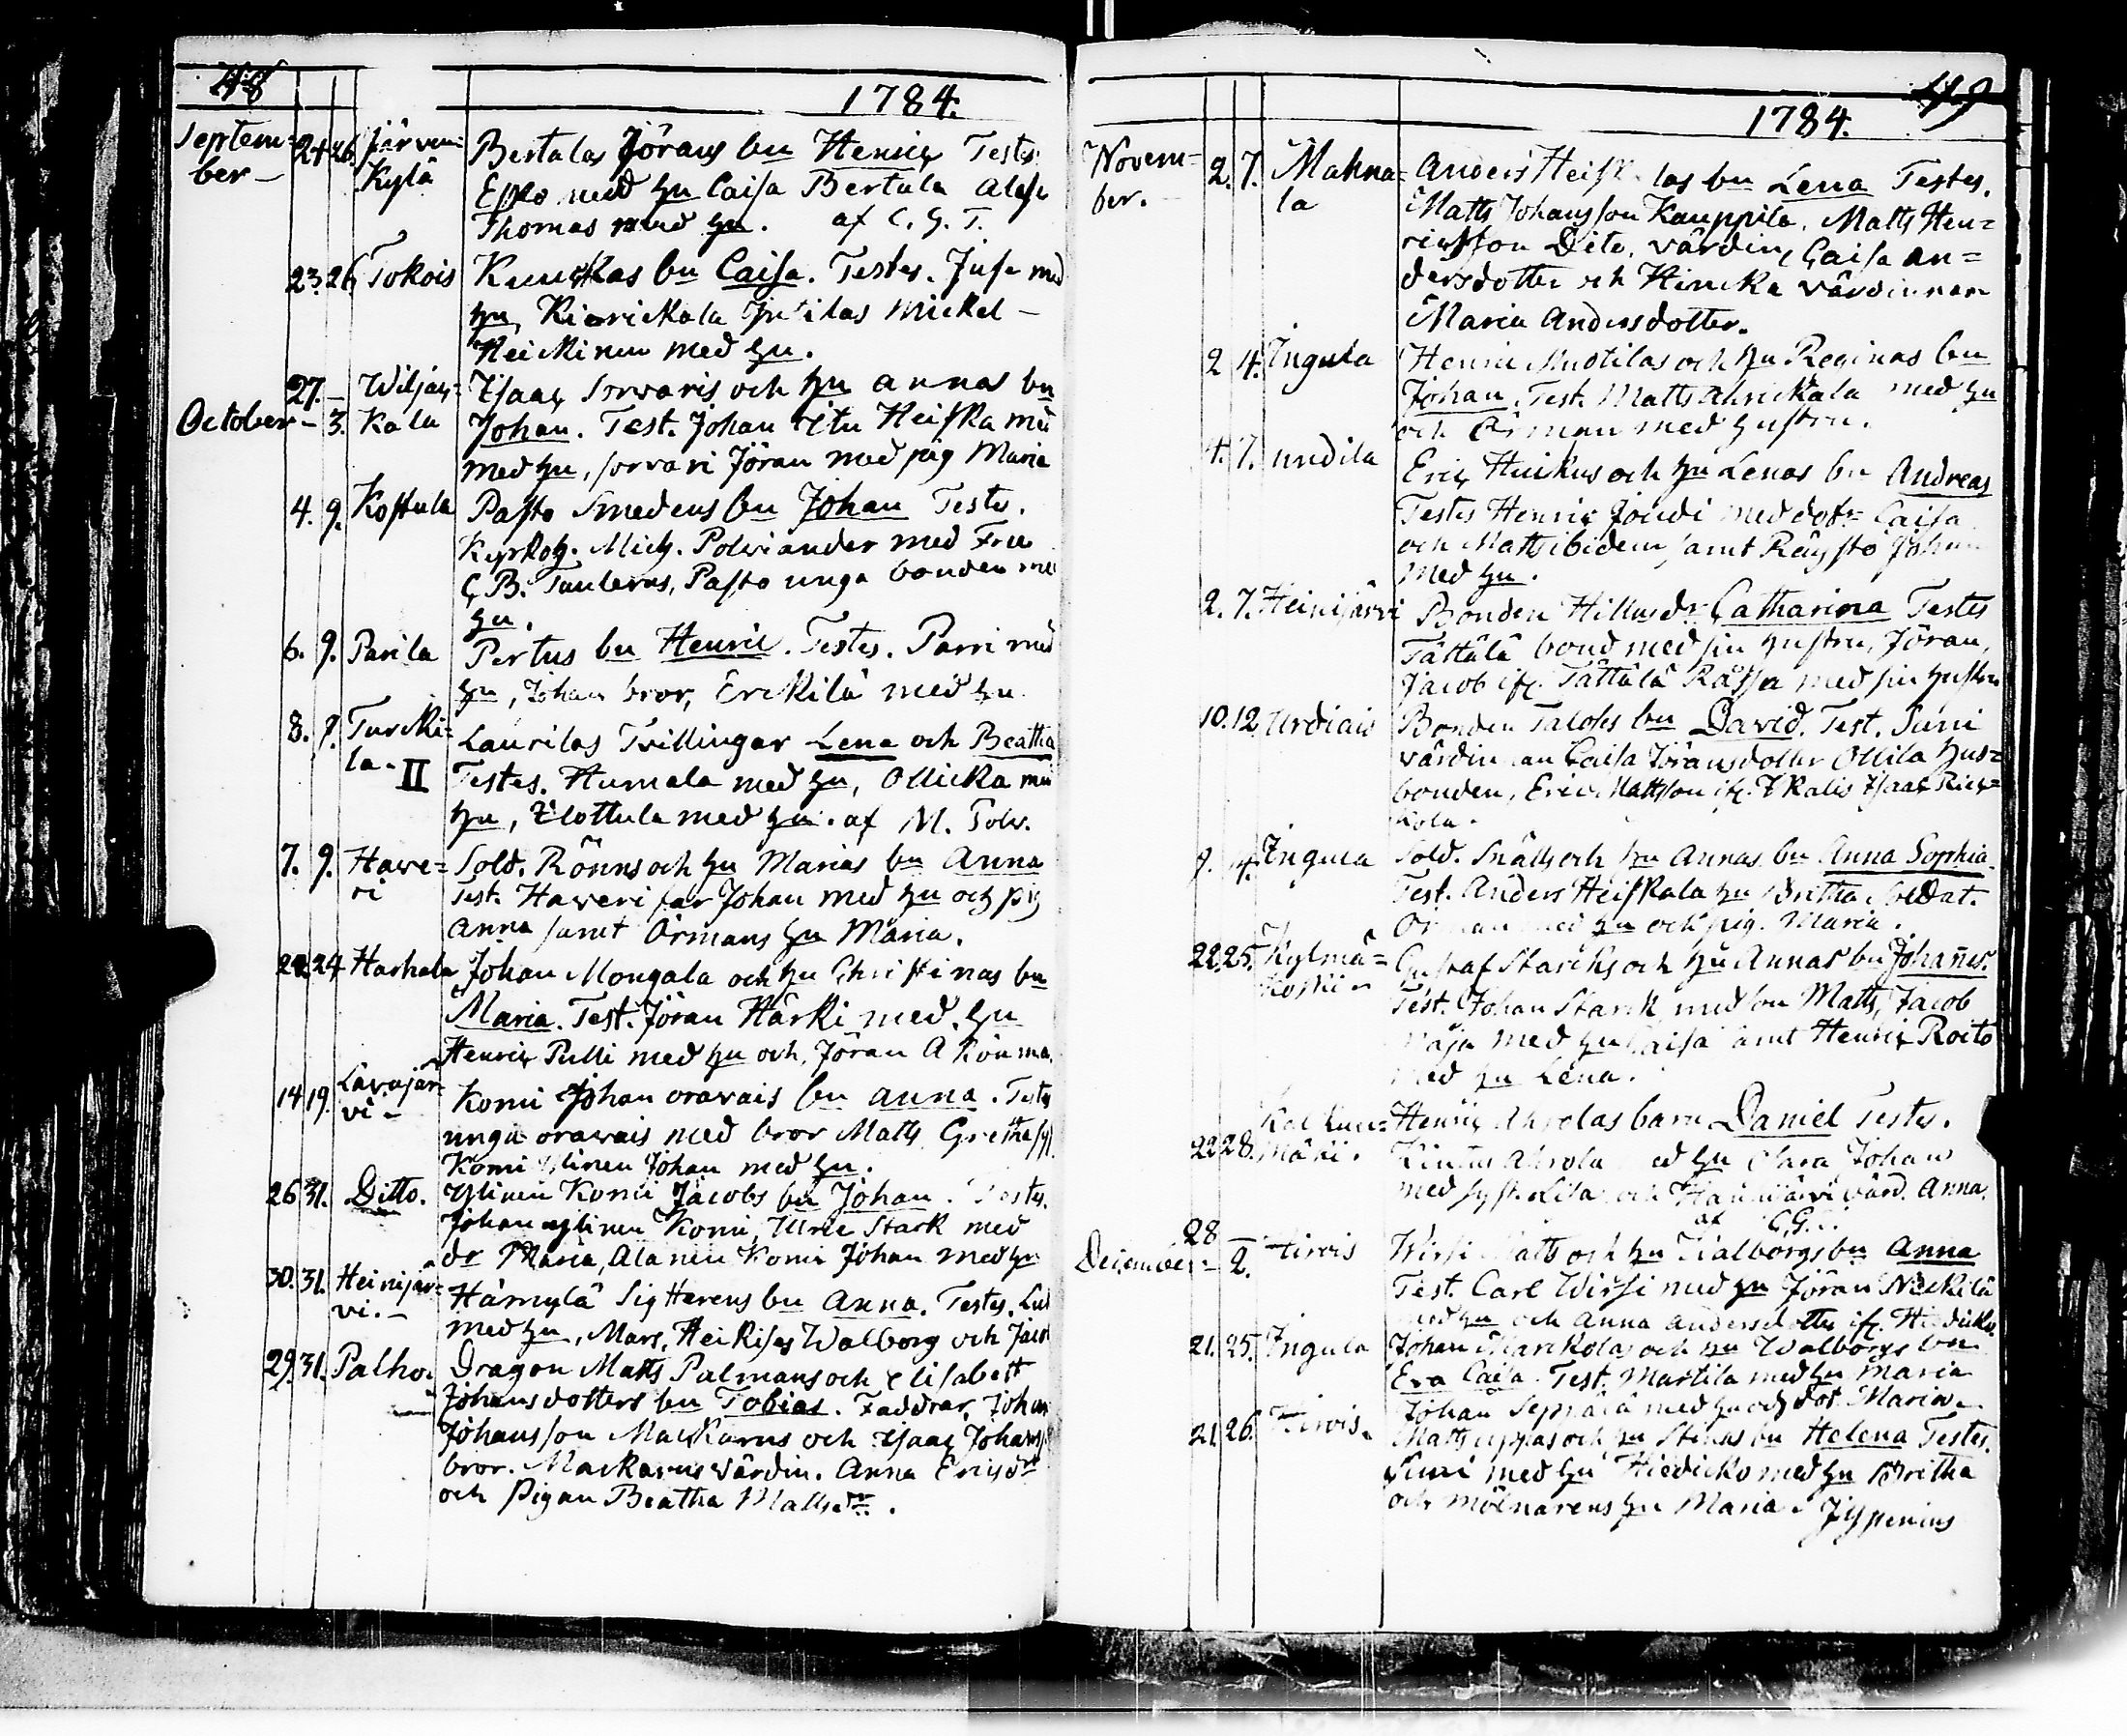 48
1784.
Septem=
ber –
24. 26. Järven=
Kylä
Bertulas Jörans bn Henric Testes
Esko med hu Caisa Bertula
Thomas med hu. af C. G. T.
23. 26. Tokois
bn Caisa. Testes. Juse med
hu, Mickel –
Heickinen med hu.
27. – Wiljac=
October – 3. Kala
Isaac Sorvaris och hu Annas bn
Johan. Test. Johan Heiska
med hu, Sorvari Jöran med pig Maria
4. 9. Kostula
Pasto Smedens bn Johan Testes.
Kyrkoh. Mich. Polviander med Fru
C. B. Tanlerus, Pasto unga bonden med
hu.
6. 9. Parila
Pertus bn Henric. Testes. Parri med
hu, Johan bror, Erckilä med hu
8. 9. Turcki=
la. II
Laurilas Tvillingar Lena och Beatha
Testes. Humala med hu, Ollicka med
hu, Flottula med hu. af M. Polv.
7. 9. Hawe=
ri
Sold. Rönns och hu Marias bn Anna
Test. Haveri far Johan med hu och pig
Anna samt Örmans hu Maria.
22. 24. Harhala
Johan Mongala och hu Christinas bn
Maria. Test. Jöran Härki med hu
Henric Pulli med hu och Jöran
14. 19. Lavajär
vi –
Komi Johan oravais bn Anna. Testes
unga oravais med bror Matts Gretha
Komi Ylinen Johan med hu.
26. 31. Ditto.
Ylinen Komi Jacobs bn Johan. Testes.
Johan Ylinen Komi, Ulric Stark med
dr Maria, Alanen Komi Johan med hu
30. 31. Heinijär=
vi. –
Hämylä Sigherens bn Anna. Testes.
med hu, Mars. Heikises Walborg och Jacob
29. 31. Palho.
Dragon Matts Palmans och Elisabett
Johansdotters bn Tobias. Faddrar, Johan
Johansson Mackarus och Isaac Johans
bror. Mackarus värdin. Anna Ericsdr
och Pigan Beatha Mattsdr.
49
1784.
Novem=
ber.
2. 7. Mahna=
la
Anders bn Lena Testes.
Matts Johansson Kauppila, Matts Hen=
ricsson Dito, värdin, Caisa An=
dersdotter och Hincka värdinnan
Maria Andersdotter.
2 4. Ingula
Henric Muotilas och hu Reginas bn
Johan. Test. Matts Ahrickala med hu
och Örman med hustru.
4. 7. undila
Eric Huikus och hu Lenas bn Andreas
Testes Henric Joudi med dotr Caisa
och Matts ibidem, samt Räystö Johan
med hu.
2. 7. Heinijärvi
Bonden Hillus dr Catharina Testes
Tättälä bond med sin hustru, Jöran,
Jacob ifr. Tättälä med sin hustru
10. 12. Urdiais
Bonden Taloses bn David. Test. Suni
värdinnan Caisa Jöransdotter Ollila hus=
bonden, Eric Mattsson ifr. Isaac
kola.
9. 14. Ingula
Sold. Snälls och hu Annas bn Anna Sophia.
Test. Anders Heiskala hu Britha Soldat.
Örman med hu och pig. Maria.
22. 25. Kylmä=
koski.
Gustaf Starcks och hu Annas bn Johannes.
Test. Johan Starck med son Matts, Jacob
med hu Caisa samt Henric Roito
med hu Lena.
22. 28. mäki.
Henric Ahrolas barn Daniel Testes.
Ahrola med hu Clara Johan
med syst. Lisa och värd. Anna
af C.G.
28
December – 2. Hirvis
Wirsi Matts och hu Walborgs bn Anna
Test. Carl Wirsi med hu Jöran Näckilä
med hu och Anna Andersdotter ifr.
21. 25. Ingula
Johan Marckolas och hu Walborgs bn
Eva Caisa. Test. Martila med hu Maria
Johan Seppälä med hu och dot. Maria.
21. 26. Hirvis.
Matts uppas och hu Stinas bn Helena Testes.
Suni med hu Hiedicko med hu Britha
och mölnarens hu Maria.